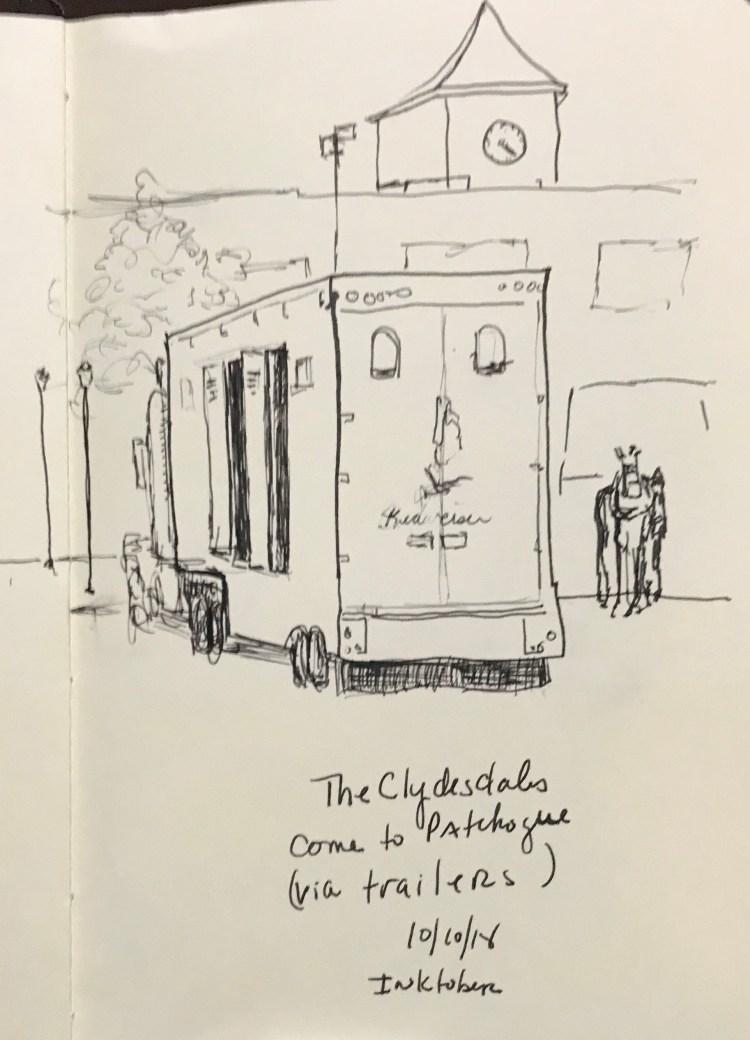 Budweiser
The Clydesdales
Come to Patchogue
(via trailers)
10/10/18
Inktober